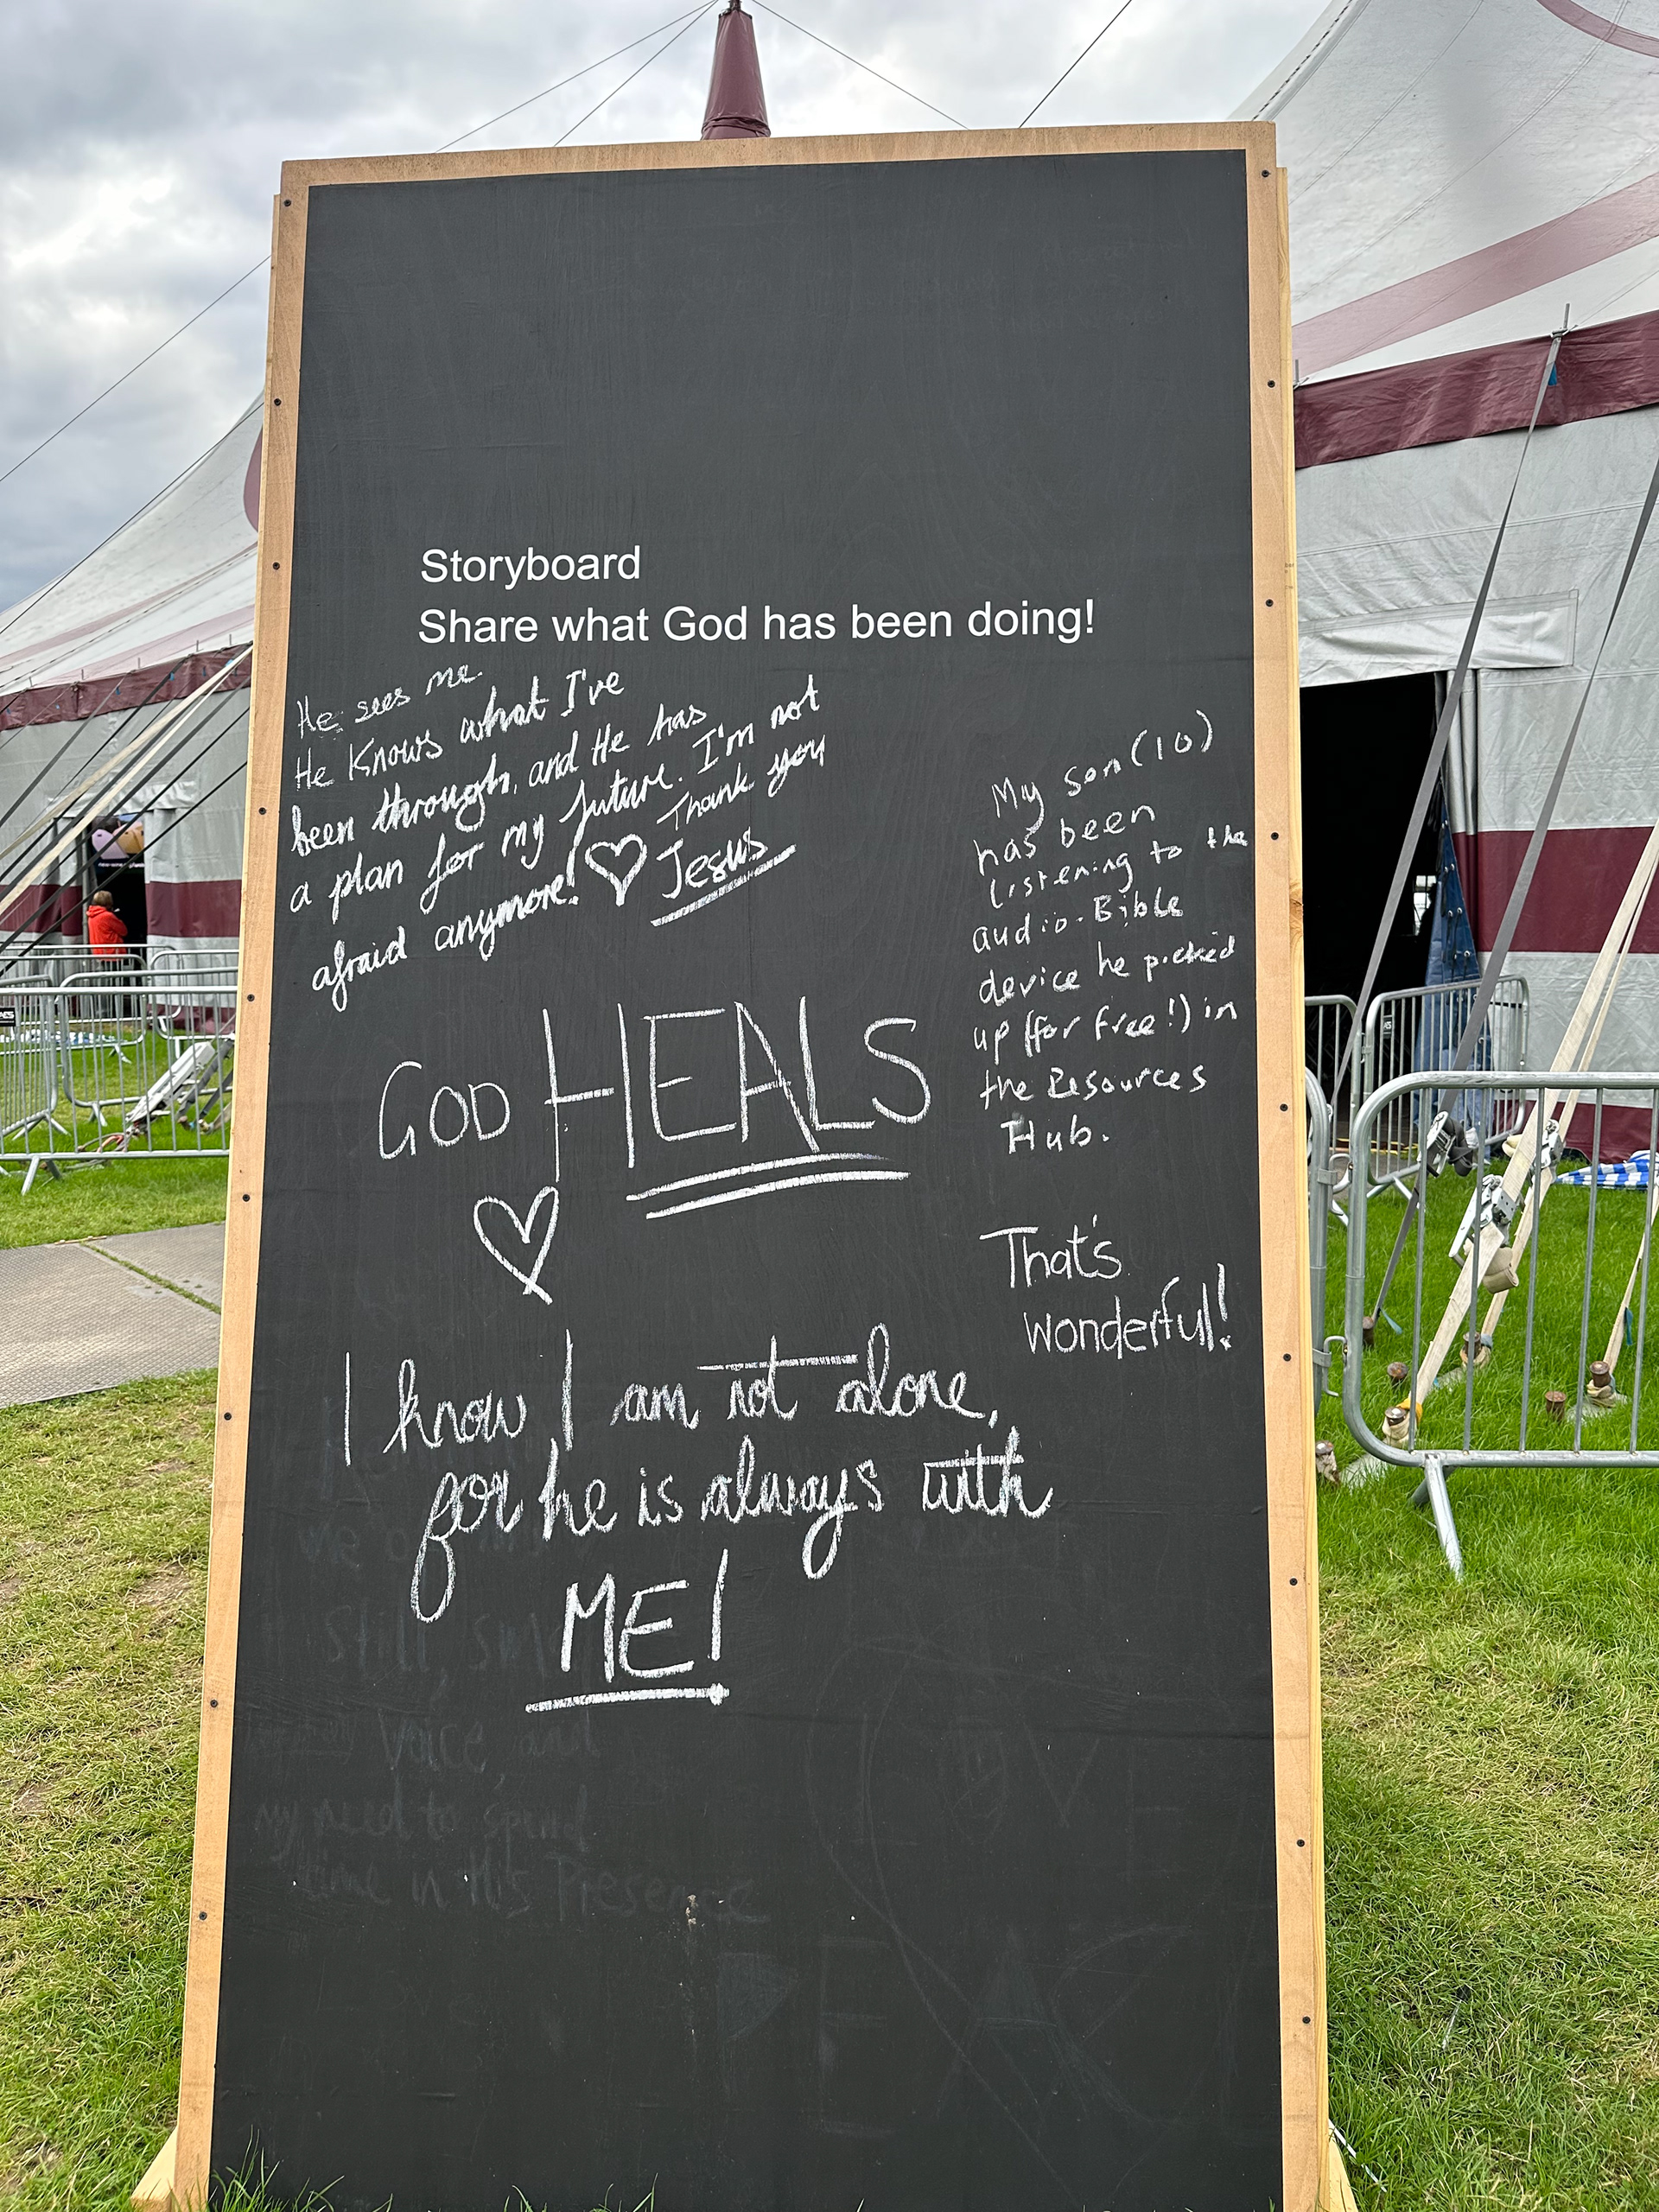 Storyboard
Share what God has been doing!
He sees me.
He Knows what I've
been through, and He has
a plan for my future. I'm not
afraid anymore! ♡ Thank you
Jesus
My son (10)
has been
listening to the
audio-Bible
device he picked
up (for free!) in
the Resources
Hub.
That's
wonderful!
GOD HEALS
♡
I know I am not alone,
for he is always with
ME!
Still,
voice, and
my need to spend
time in His Presence